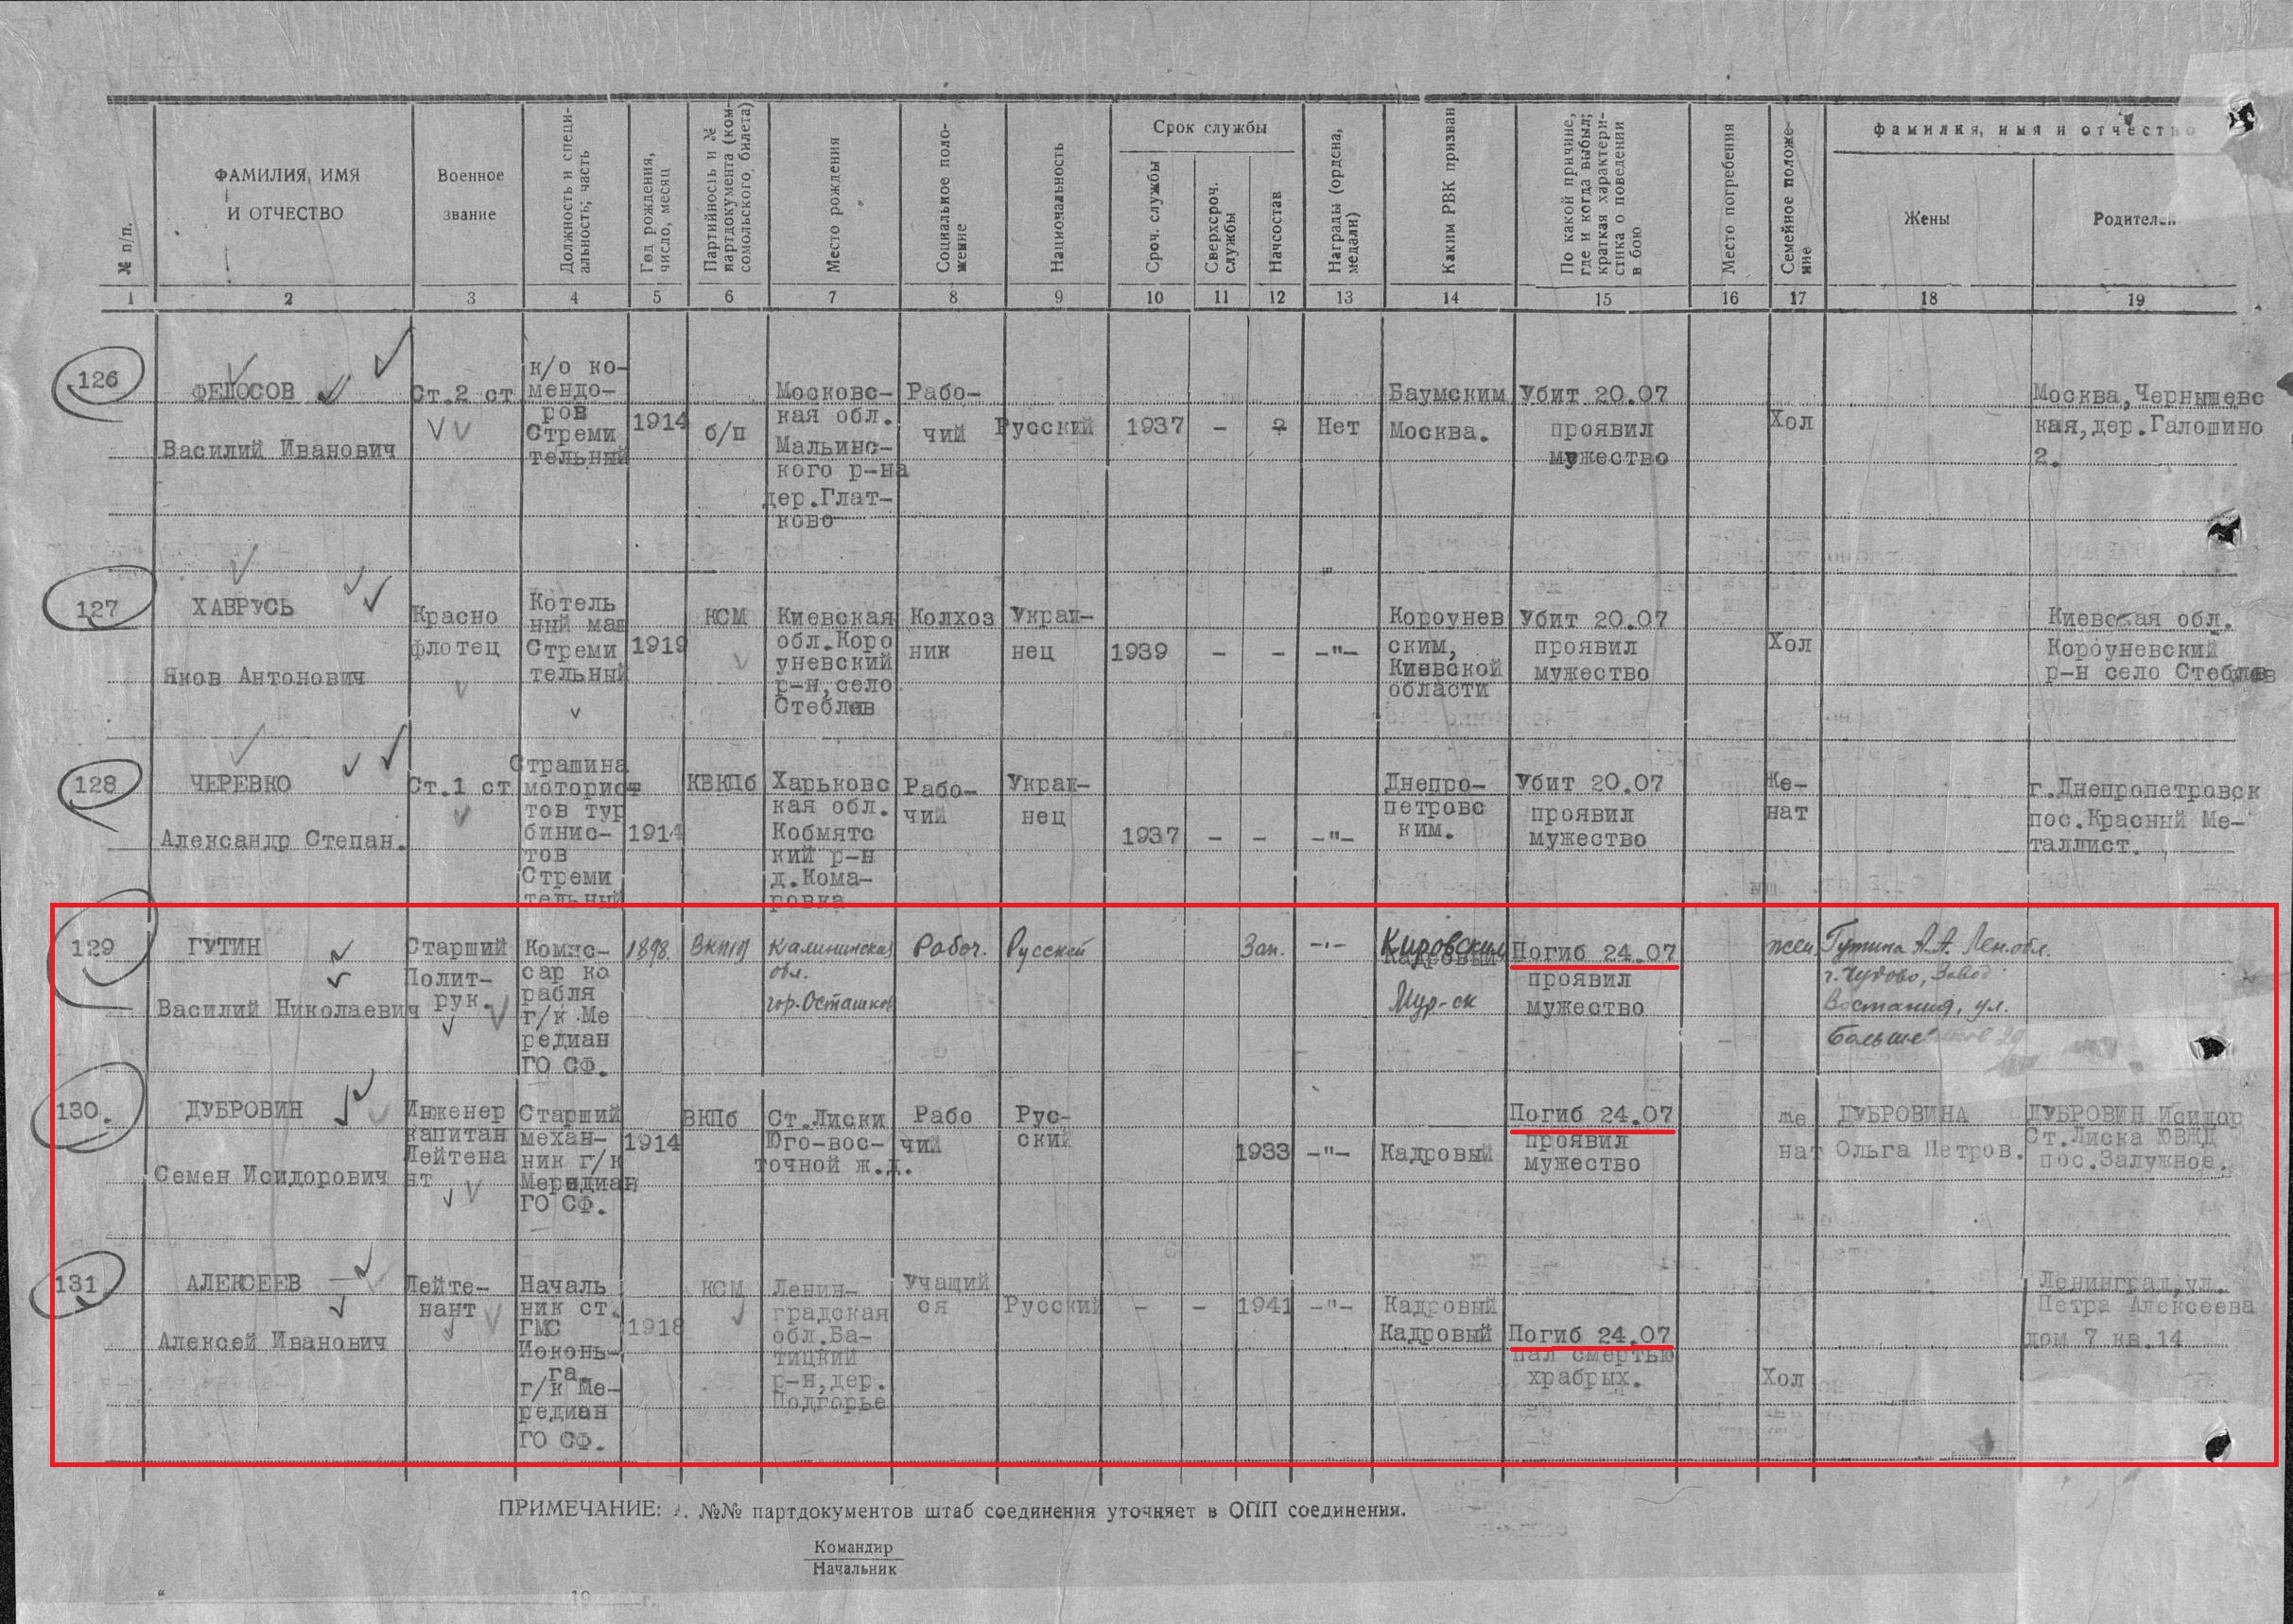 № п/п.
ФАМИЛИЯ, ИМЯ
И ОТЧЕСТВО
Военное
звание
Должность и специ-
альность; часть
Год рождения,
число, месяц
Партийность и №
партдокумента (ком-
сомольского билета)
Место рождения
Социальное поло-
жение
Национальность
Срок службы
Сроч. службы
Сверхсроч.
службы
Начсостав
Награды (ордена,
медали)
Каким РВК призван
По какой причине,
где и когда выбыл;
краткая характери-
стика о поведении
в бою
Место погребения
Семейное положе-
ние
Фамилия, имя и отчество
Жены
Родителей
1 2 3 4 5 6 7 8 9 10 11 12 13 14 15 16 17 18 19
126
ФЕДОСОВ
Василий Иванович
Ст.2 ст
к/о ко-
мендо-
ров
Стреми
тельный
1914
б/п
Московс-
кая обл.
Мальинс-
кого р-на
дер.Глат-
ково
Рабо-
чий
Русский
1937
–
Нет
Баумским
Москва.
Убит 20.07
проявил
мужество
Хол
Москва,Чернышевс
кая,дер.Галошино
2.
127
ХАВРУСЬ
Яков Антонович
Красно
флотец
Котель
ный маш
Стреми
тельный
1919
КСМ
Киевская
обл.Коро
уневский
р-н,село
Стеблев
Колхоз
ник
Украи-
нец
1939
–
–
–"–
Короунев
ским,
Киевской
области
Убит 20.07
проявил
мужество
Хол
Киевская обл.
Короуневский
р-н село Стеблев
128
ЧЕРЕВКО
Александр Степан.
Ст.1 ст
Страшина
моторист
тов тур
бинис-
тов
Стреми
тельный
1914
КВКПб
Харьковс
кая обл.
Кобмятс
кий р-н
д.Кома-
ровка
Рабо-
чий
Украи-
нец
1937
–
–
–"–
Днепро-
петровс
ким.
Убит 20.07
проявил
мужество
Же-
нат
г.Днепропетровск
пос.Красный Ме-
таллист.
129
ГУТИН
Василий Николаевич
Старший
Полит-
рук.
Комис-
сар ко
рабля
г/к Ме
редиан
ГО СФ.
1898
Калининская
обл.
гор.Осташков
Рабоч.
Русский
Зап.
–"–
Кировским
Кадровый
Мур-ск
Погиб 24.07
проявил
мужество
жен
Гутина А.А. Лен.обл.
г.Чудово, Завод
Востания, ул.
Большевиков
130.
ДУБРОВИН
Семен Исидорович
Инженер
капитан
Лейтена
нт
Старший
механ-
ник г/к
Меридиан
ГО СФ.
1914
ВКПб
Ст.Лиски
Юго-вос-
точной ж.д.
Рабо
чий
Рус-
ский
1933
–"–
Кадровый
Погиб 24.07
проявил
мужество
же
нат
ДУБРОВИНА
Ольга Петров.
ДУБРОВИН Исидор
Ст.Лиска ЮВЖД
пос.Залужное.
131
АЛЕКСЕЕВ
Алексей Иванович
Лейте-
нант
Началь
ник ст.
ГМС
Иоконь-
га.
г/к Ме-
редиан
ГО СФ.
1918
КСМ
Ленин-
градская
обл.Ба-
тицкий
р-н,дер.
Подгорье
Учащий
ся
Русский
–
–
1941
–"–
Кадровый
Кадровый
Погиб 24.07
пал смертью
храбрых.
Хол
Ленинград,ул.
Петра Алексеева
дом 7 кв.14
ПРИМЕЧАНИЕ: №№ партдокументов штаб соединения уточняет в ОПП соединения.
Командир
Начальник
19 г.